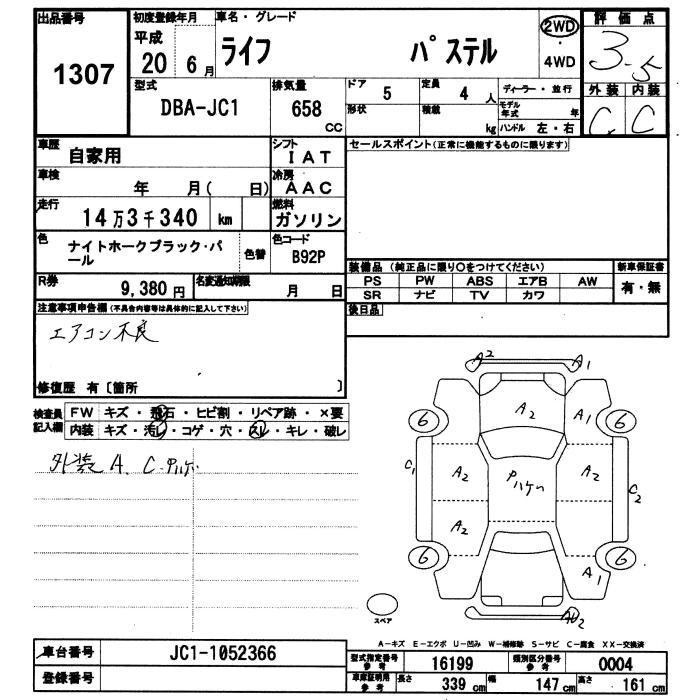 出品番号 初度登録年月 車名・グレード 評価点
1307 平成 20 6月 ライフ パステル 2WD・4WD 3.5
型式 排気量 ドア 5 定員 4人 ディーラー・並行 外装 内装
DBA-JC1 658 cc 形状 積載 kg モデル年式 年 C C
ハンドル 左・右
車歴 自家用 シフト IAT セールスポイント(正常に機能するものに限ります)
車検 年 月( 日) 冷房 AAC
走行 14万3千340 km 燃料 ガソリン
色 ナイトホークブラック・パール 色替 色コード B92P
装備品 (純正品に限り○をつけてください) 新車保証書
R券 9,380円 名変通知期限 月 日 PS PW ABS エアB AW 有・無
SR ナビ TV カワ
注意事項申告欄(不具合内容等は具体的に記入して下さい) 後日品
エアコン不良
修復歴 有〔箇所 〕
検査員記入欄 FW キズ・飛石・ヒビ割・リペア跡・×要
内装 キズ・汚レ・コゲ・穴・スレ・キレ・破レ
外装 A、C. Pハゲ
A2 A1
6 A2 A1 6
C1 A2 Pハゲ A2 C2
A2
6 A1 6
スペア
A-キズ E-エクボ U-凹み W-補修跡 S-サビ C-腐食 XX-交換済
車台番号 JC1-1052366 型式指定番号 参考 16199 類別区分番号 参考 0004
登録番号 車庫証明用 参考 長さ 339cm 幅 147cm 高さ 161cm